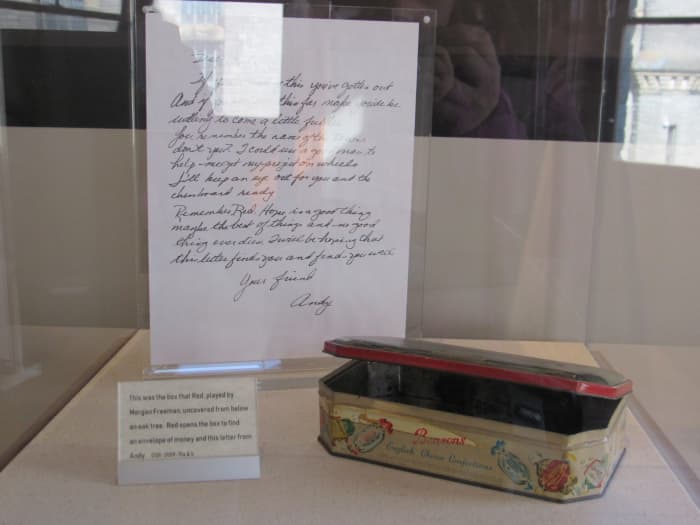 this you've gotten out
And if this far maybe you'd be
willing to come a little further
You remember the name of the town
don't you? I could use a good man to
help me get my project on wheels
I'll keep an eye out for you and the
chessboard ready
Remember Red. Hope is a good thing
maybe the best of things and no good
thing ever dies. I will be hoping that
this letter finds you and finds you well
Your friend
Andy
This was the box that Red, played by
Morgan Freeman, uncovered from below
an oak tree. Red opens the box to find
an envelope of money and this letter from
Andy.
Benson's
English Choice Confections